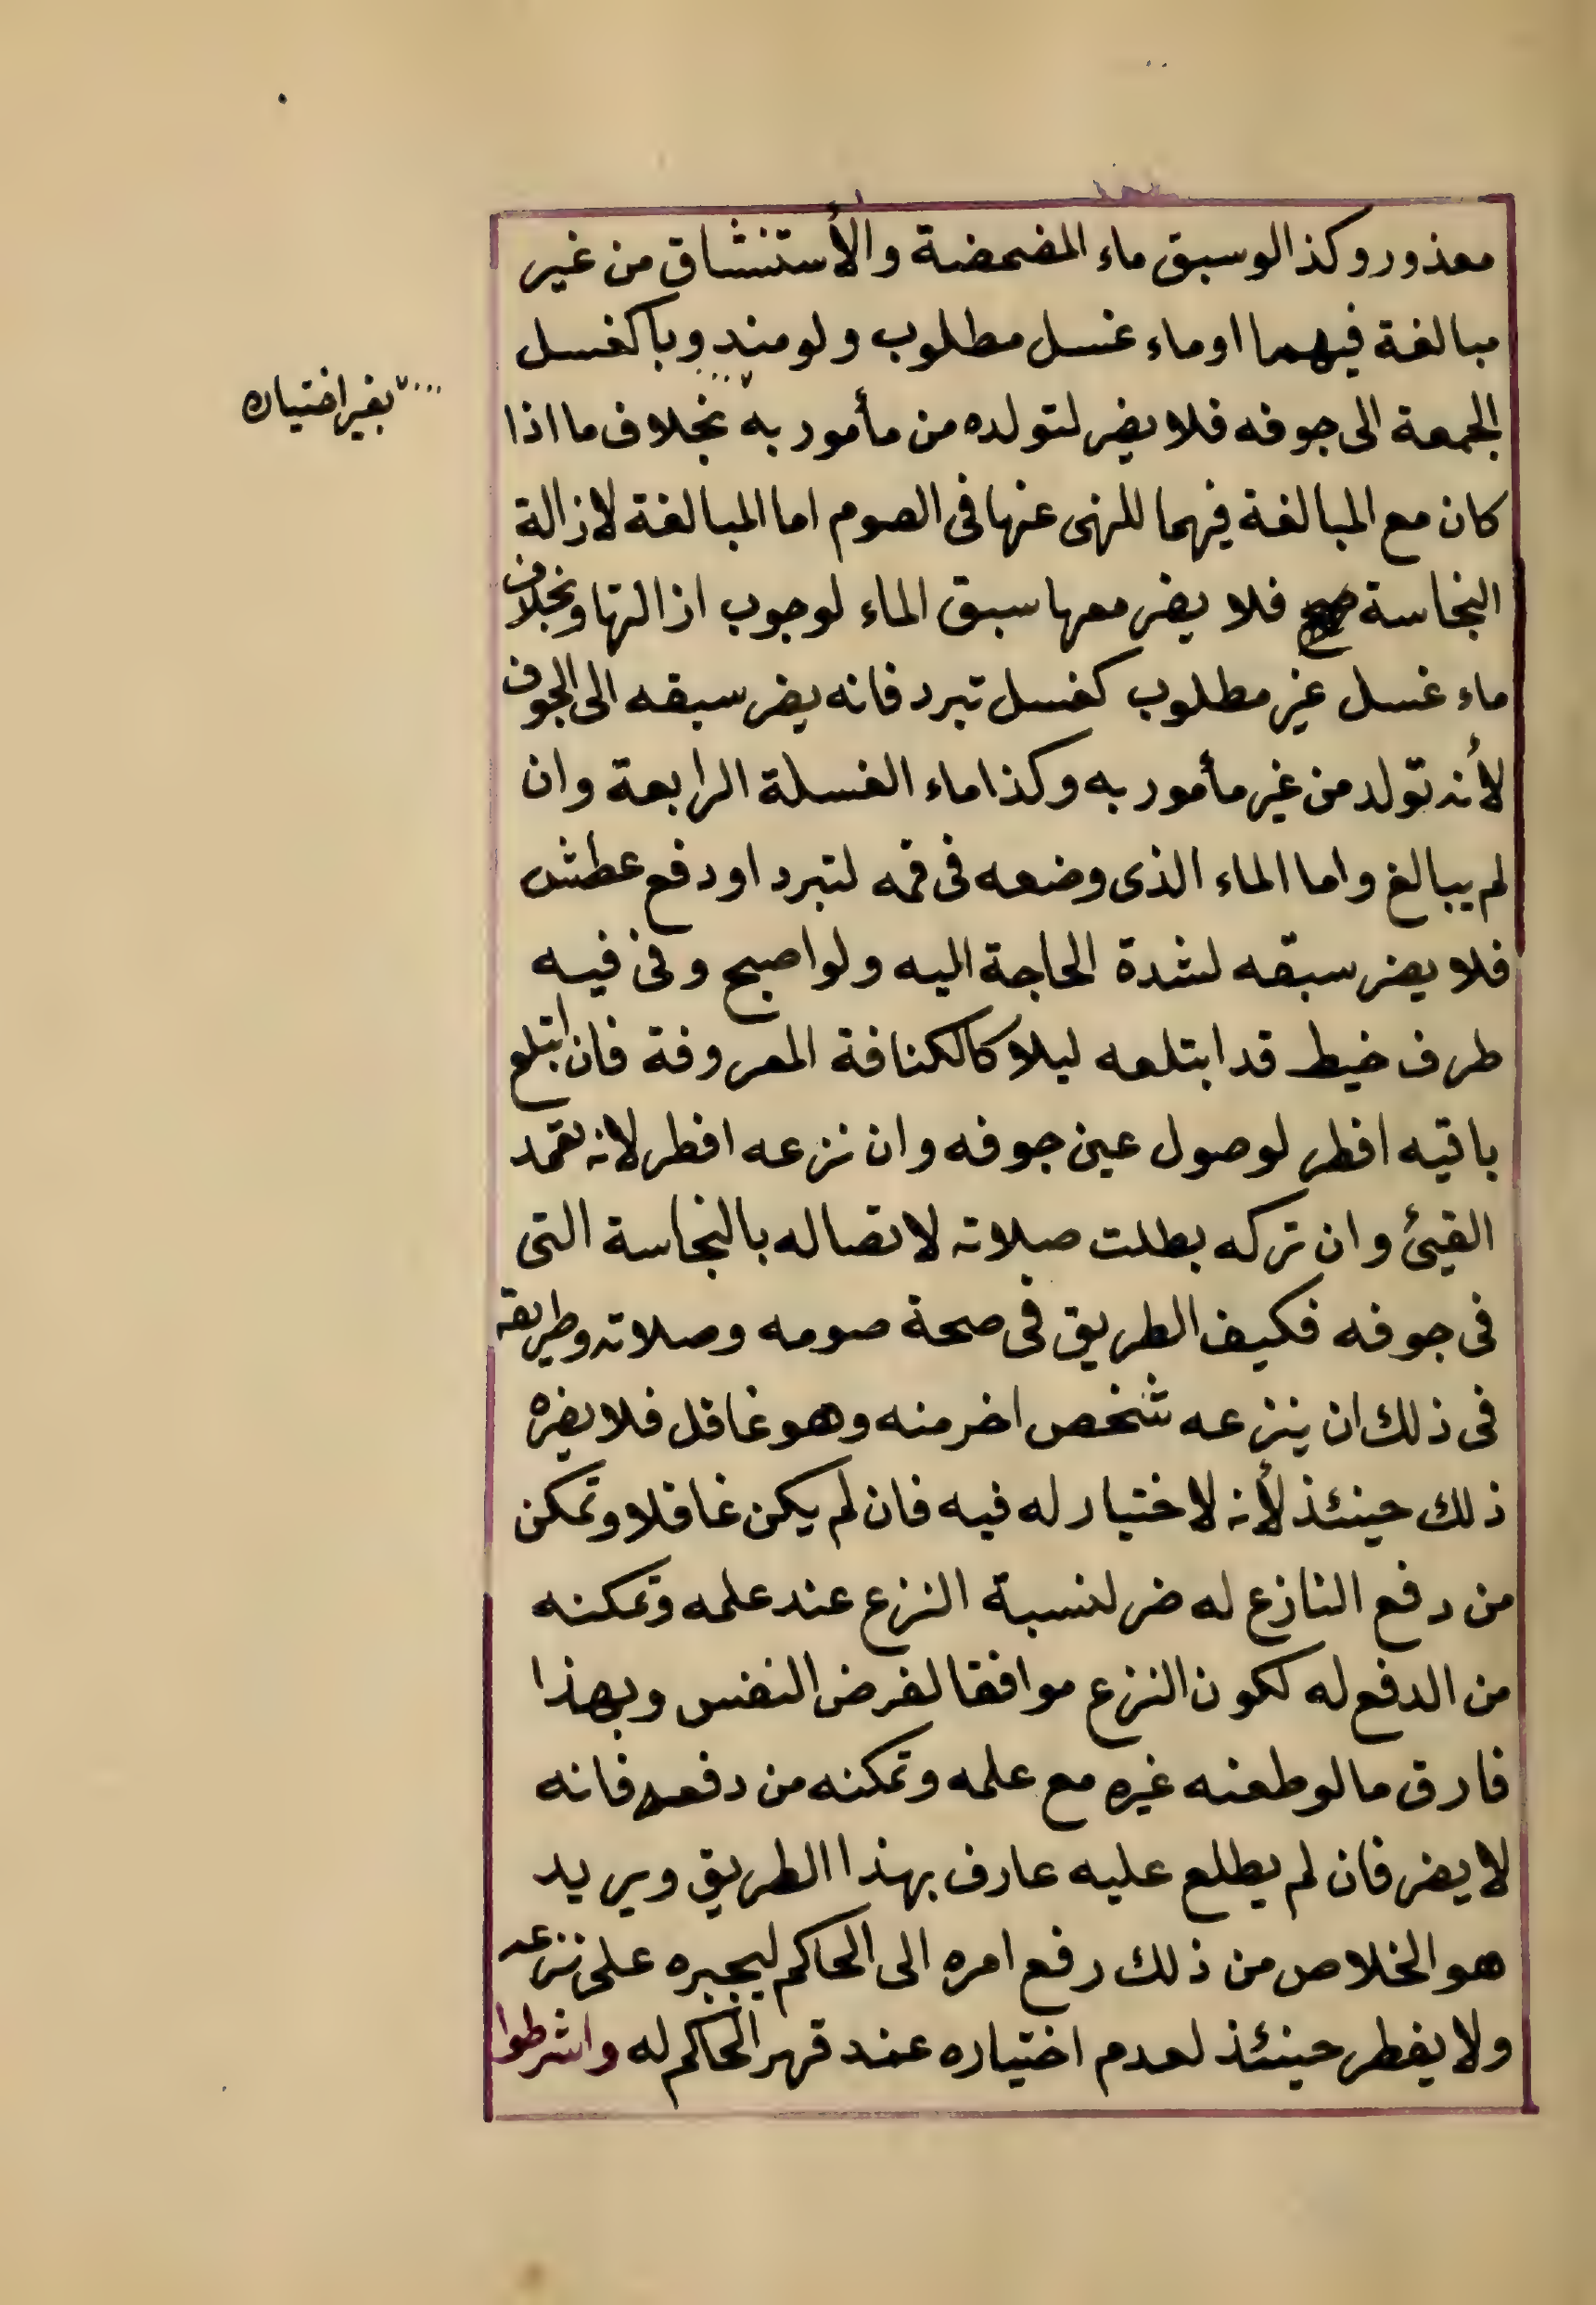 معذور وكذا لو سبق ماء المضمضة والأستنشاق من غير
مبالغة فيهما او ماء غسل مطلوب ولو مندوبا كغسل
الجمعة الى جوفه فلا يضر لتولده من مأمور به بخلاف ما اذا
بغير اختياره
كان مع المبالغة فيهما للنهى عنها فى الصوم اما المبالغة لازالة
النجاسة فلا يضر معها سبق الماء لوجوب ازالتها وبخلاف
ماء غسل غير مطلوب كغسل تبرد فانه يضر سبقه الى الجوف
لأنه تولد من غير مأمور به وكذا ماء الغسلة الرابعة وان
لم يبالغ واما الماء الذى وضعه فى فمه لتبرد او دفع عطش
فلا يضر سبقه لشدة الحاجة اليه ولو اصبح وفى فيه
طرف خيط قد ابتلعه ليلا كالكنافة المعروفة فان ابتلع
باقيه افطر لوصول عين جوفه وان نزعه افطر لانه تعمد
القيئ وان تركه بطلت صلاته لاتصاله بالنجاسة التى
فى جوفه فكيف الطريق فى صحة صومه وصلاته وطريقه
فى ذلك ان ينزعه شخص اخر منه وهو غافل فلا يضره
ذلك حينئذ لأنه لا اختيار له فيه فان لم يكن غافلا وتمكن
من دفع النازع له ضر لنسبة النزع عند علمه وتمكنه
من الدفع له لكون النزع موافقا لغرض النفس وبهذا
فارق ما لو طعنه غيره مع علمه وتمكنه من دفعه فانه
لا يضر فان لم يطلع عليه عارف بهذا الطريق ويريد
هو الخلاص من ذلك رفع امره الى الحاكم ليجبره على نزعه
ولا يفطر حينئذ لعدم اختياره عند قهر الحاكم له واشرطوا